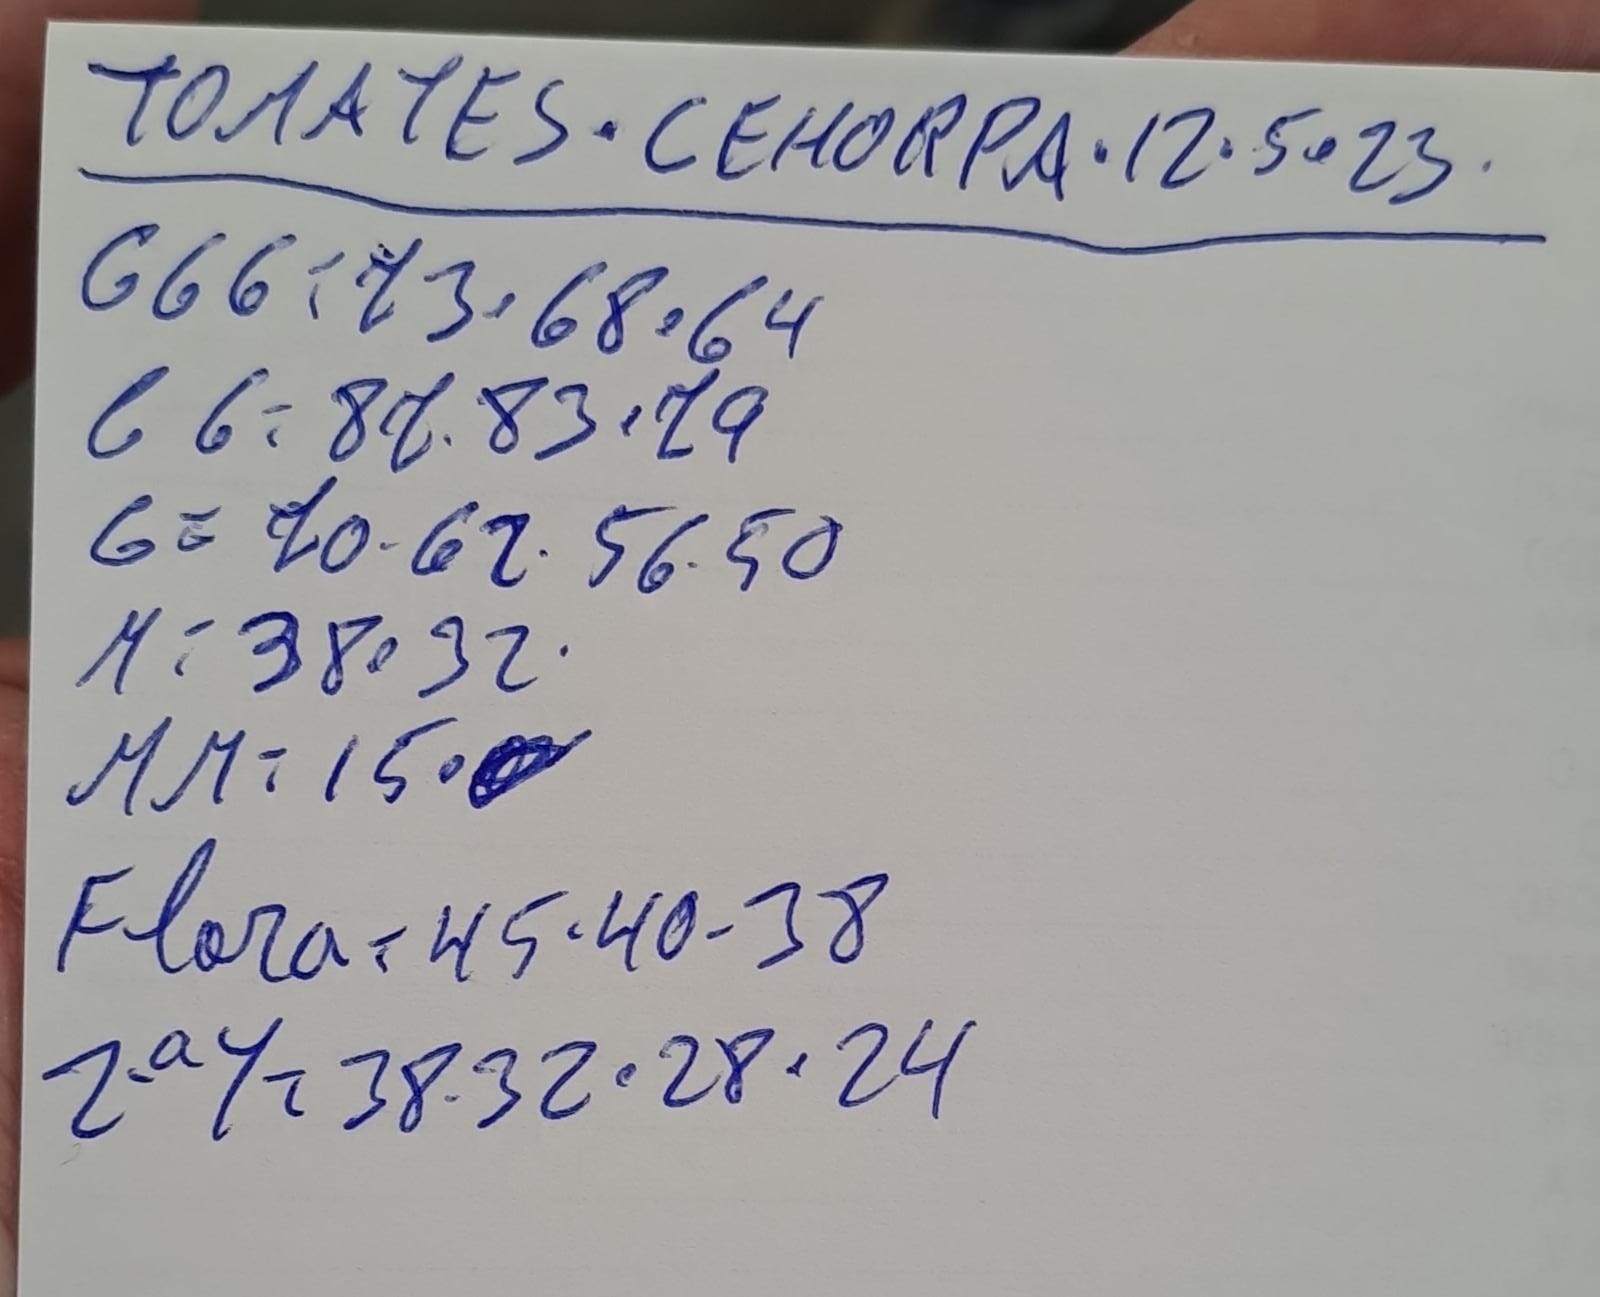 TOMATES·CEHORPA·12·5·23.
GGG=73·68·64
GG=87·83·79
G=70·62·56·50
M=38·32·
MM=15·
Flora=45·40-38
2ªY=38·32·28·24